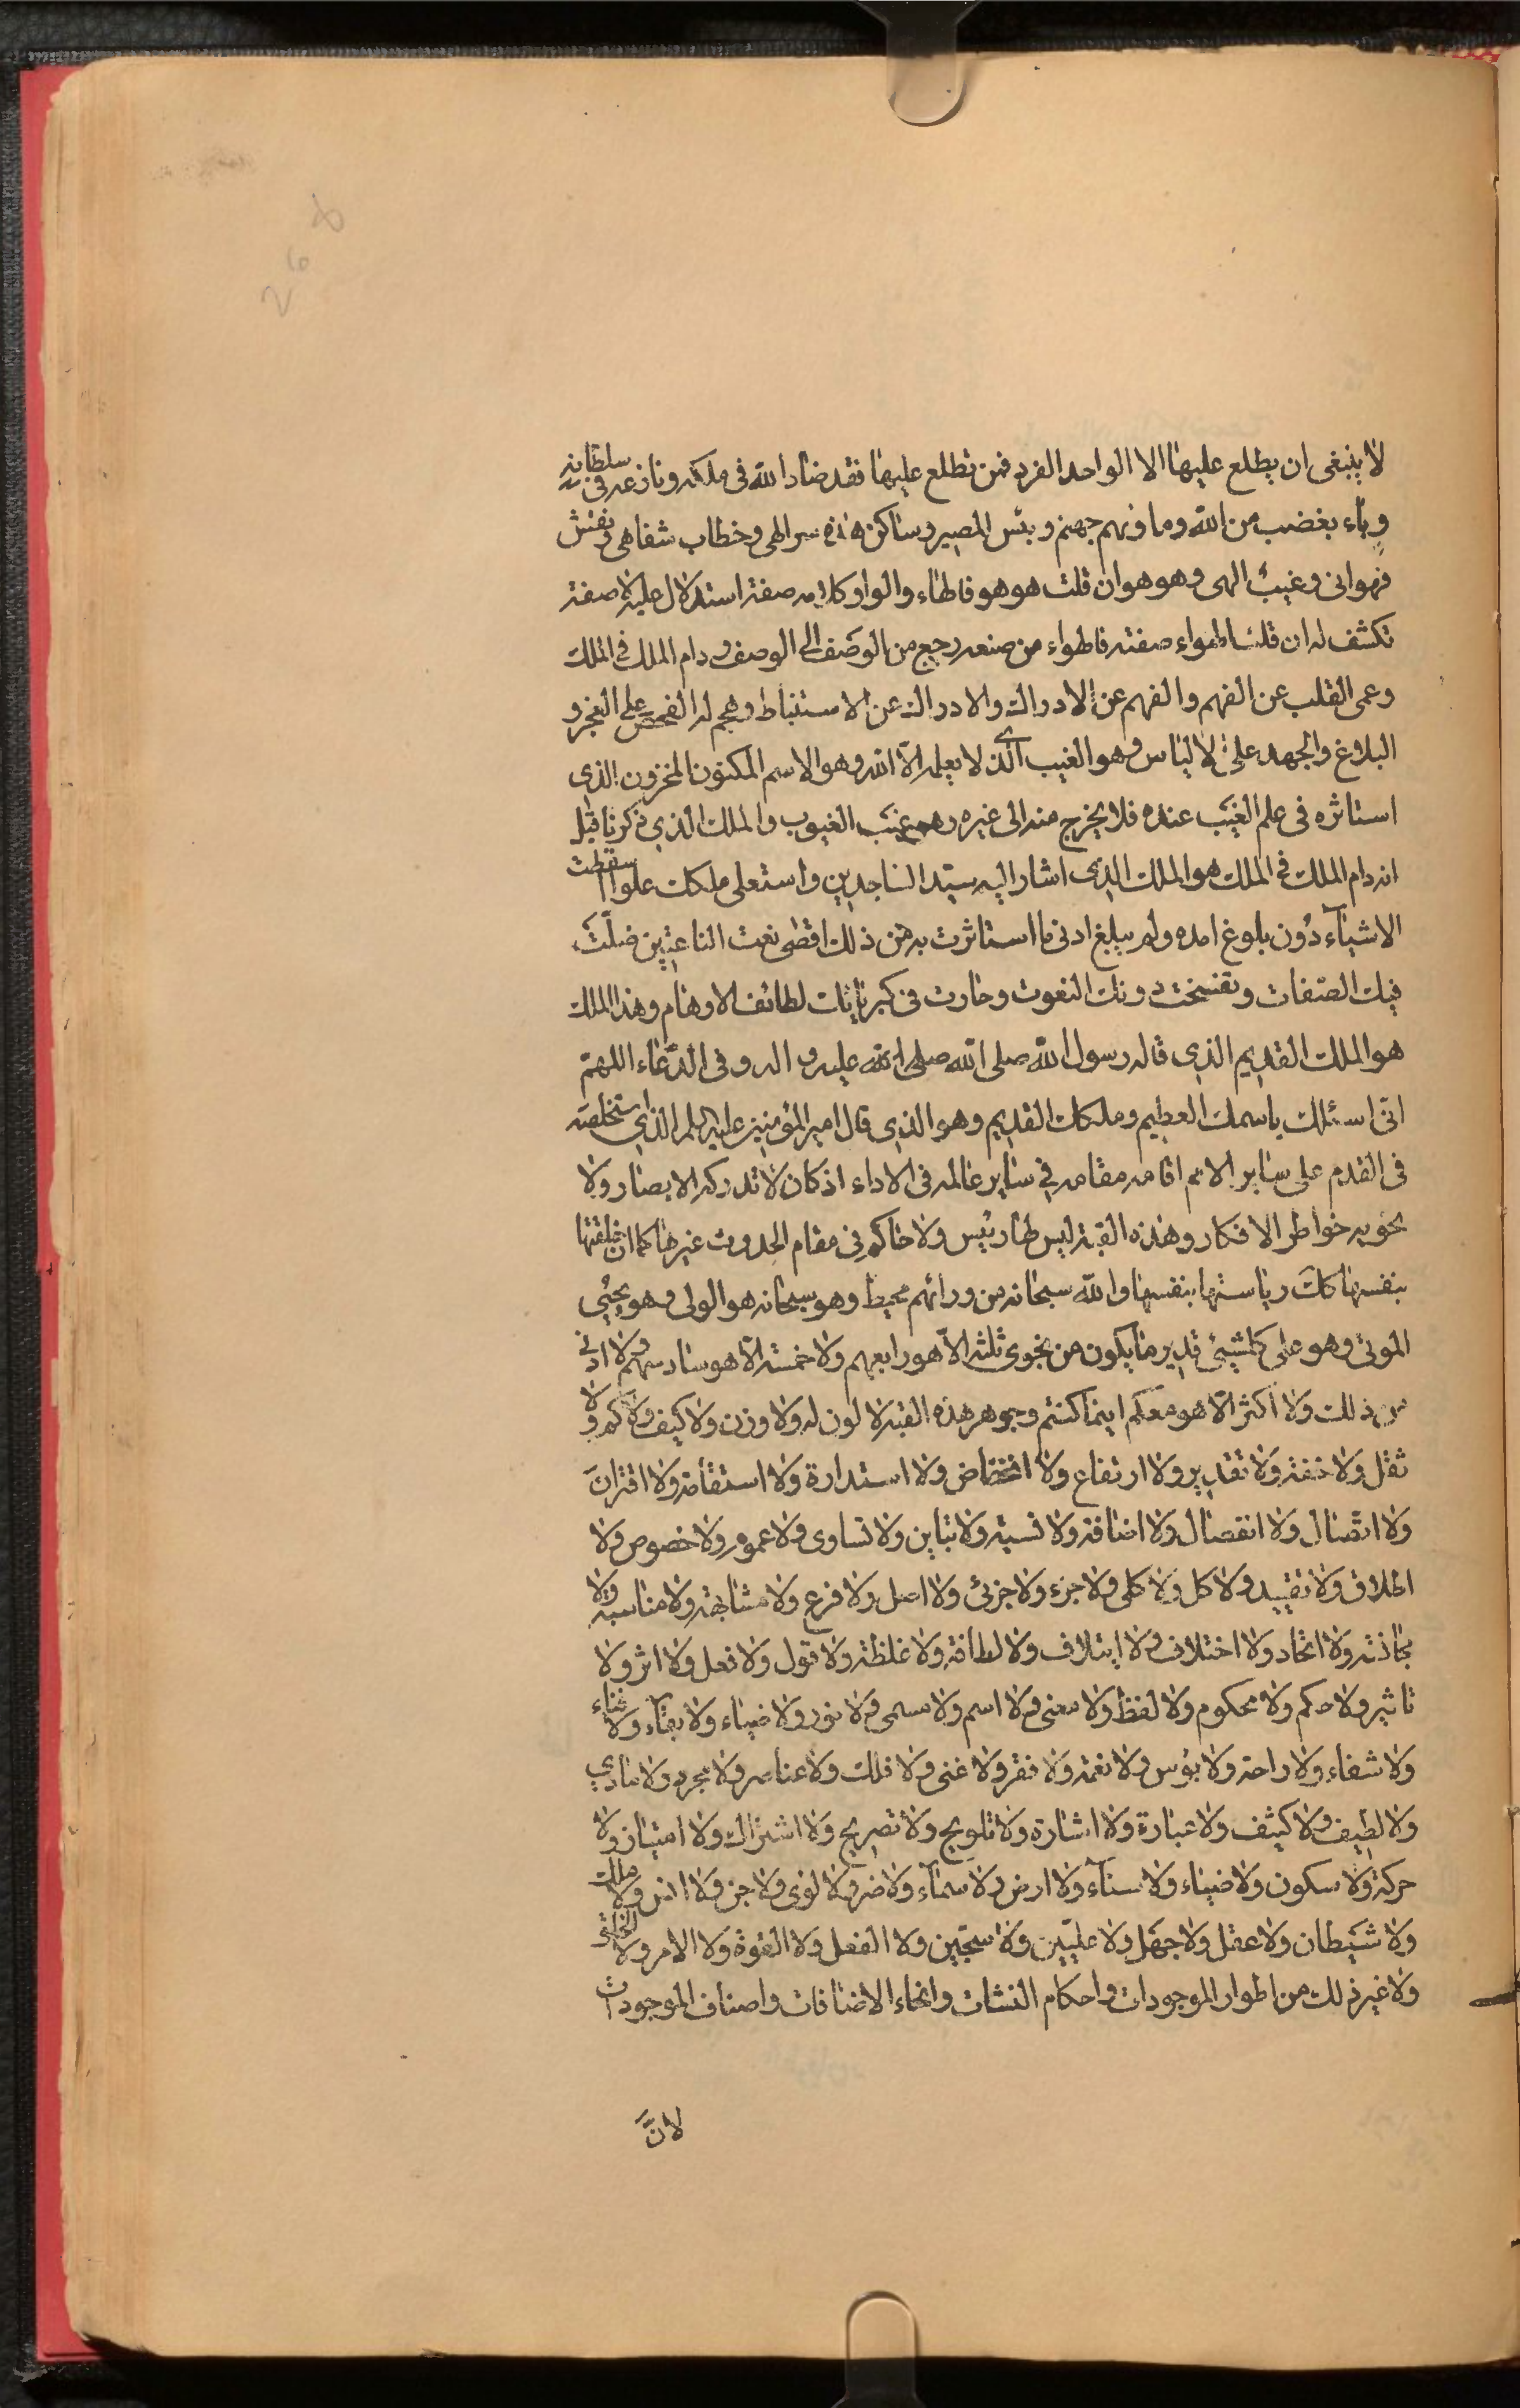 لا ينبغى ان يطلع عليها الا الواحد الفرد فمن تطلع عليها فقد ضاد الله فى ملكه ونازعه فى سلطانه
وباء بغضب من الله وماويهم جهنم وبئس المصير وساكن هذه سر الهى وخطاب شفاهى ونفش
فهوانى وغيب الهى وهو هو ان قلت هو هو فالهاء والواو كلامه صفة استدلال عليه لا صفة
تكشف له ان قلت الهواء صفته فالهواء من صنعه رجع من الوصف الى الوصف ودام الملك فى الملك
وعمى القلب عن الفهم والفهم عن الادراك والادراك عن الاستنباط وهجم له الفحص على العجز و
البلاغ والجهد على الاياس وهو الغيب الذى لا يعلمه الا الله وهو الاسم المكنون المخزون الذى
استاثره فى علم الغيب عنده فلا يخرج منه الى غيره وهو غيب الغيوب والملك الذى ذكرنا قبل
انه دام الملك فى الملك هو الملك الذى اشار اليه سيد الساجدين واستعلى ملكك علوا سقطت
الاشياء دون بلوغ امده ولم يبلغ ادنى ما استاثرت به من ذلك اقصى نعت الناعتين ضلت
فيك الصفات وتفسخت دونك النعوت وحارت فى كبريائك لطائف الاوهام وهذا الملك
هو الملك القديم الذى قاله رسول الله صلى الله صلى الله عليه واله وفى الدعاء اللهم
انى اسئلك باسمك العظيم وملكك القديم وهو الذى قال امير المؤمنين عليه السلم الذى استخلصه
فى القدم على ساير الامم اقامه مقامه فى ساير عالمه فى الاداء اذ كان لا تدركه الابصار ولا
تحويه خواطر الافكار وهذه القبة ليس لها رئيس ولا حاكم فى مقام الحدوث غيرها كما ان خلقتها
بنفسها كانت رياستها بنفسها والله سبحانه من ورائهم محيط وهو سبحانه هو الولى وهو يحيى
الموتى وهو على كلشيئ قدير ما يكون من نجوى ثلثة الا هو رابعهم ولا خمسة الا هو سادسهم ولا ادنى
من ذلك ولا اكثر الا هو معكم اينما كنتم وجوهر هذه القبة لا لون له ولا وزن ولا كيف ولا كم ولا
ثقل ولا خفة ولا تقدير ولا ارتفاع ولا انخفاض ولا استدارة ولا استقامة ولا اقتران
ولا اتصال ولا انفصال ولا اضافة ولا نسبة ولا تباين ولا تساوى ولا عموم ولا خصوص ولا
اطلاق ولا تقييد ولا كل ولا كلى ولا جزء ولا جزئى ولا اصل ولا فرع ولا مشابهة ولا مناسبة ولا
مجانثة ولا اتحاد ولا اختلاف ولا ايتلاف ولا لطافة ولا غلظة ولا قول ولا فعل ولا اثر ولا
تاثير ولا حكم ولا محكوم ولا لفظ ولا معنى ولا اسم ولا مسمى ولا نور ولا ضياء ولا بقاء ولا فناء
ولا شفاء ولا راحة ولا بؤس ولا نعمة ولا فقر ولا غنى ولا فلك ولا عناصر ولا مجرد ولا مادى
ولا لطيف ولا كيثف ولا عبارة ولا اشارة ولا تلويح ولا تصريح ولا اشتراك ولا امتياز ولا
حركة ولا سكون ولا ضياء ولا سناء ولا ارض ولا سماء ولا ضر ولا لوى ولا جن ولا انس ولا ملك
ولا شيطان ولا عقل ولا جهل ولا عليين ولا سجين ولا الفعل ولا القوة ولا الامر ولا الخلق
ولا غير ذلك من اطوار الموجودات واحكام النشات وانحاء الاضافات واصناف الموجودات
لان